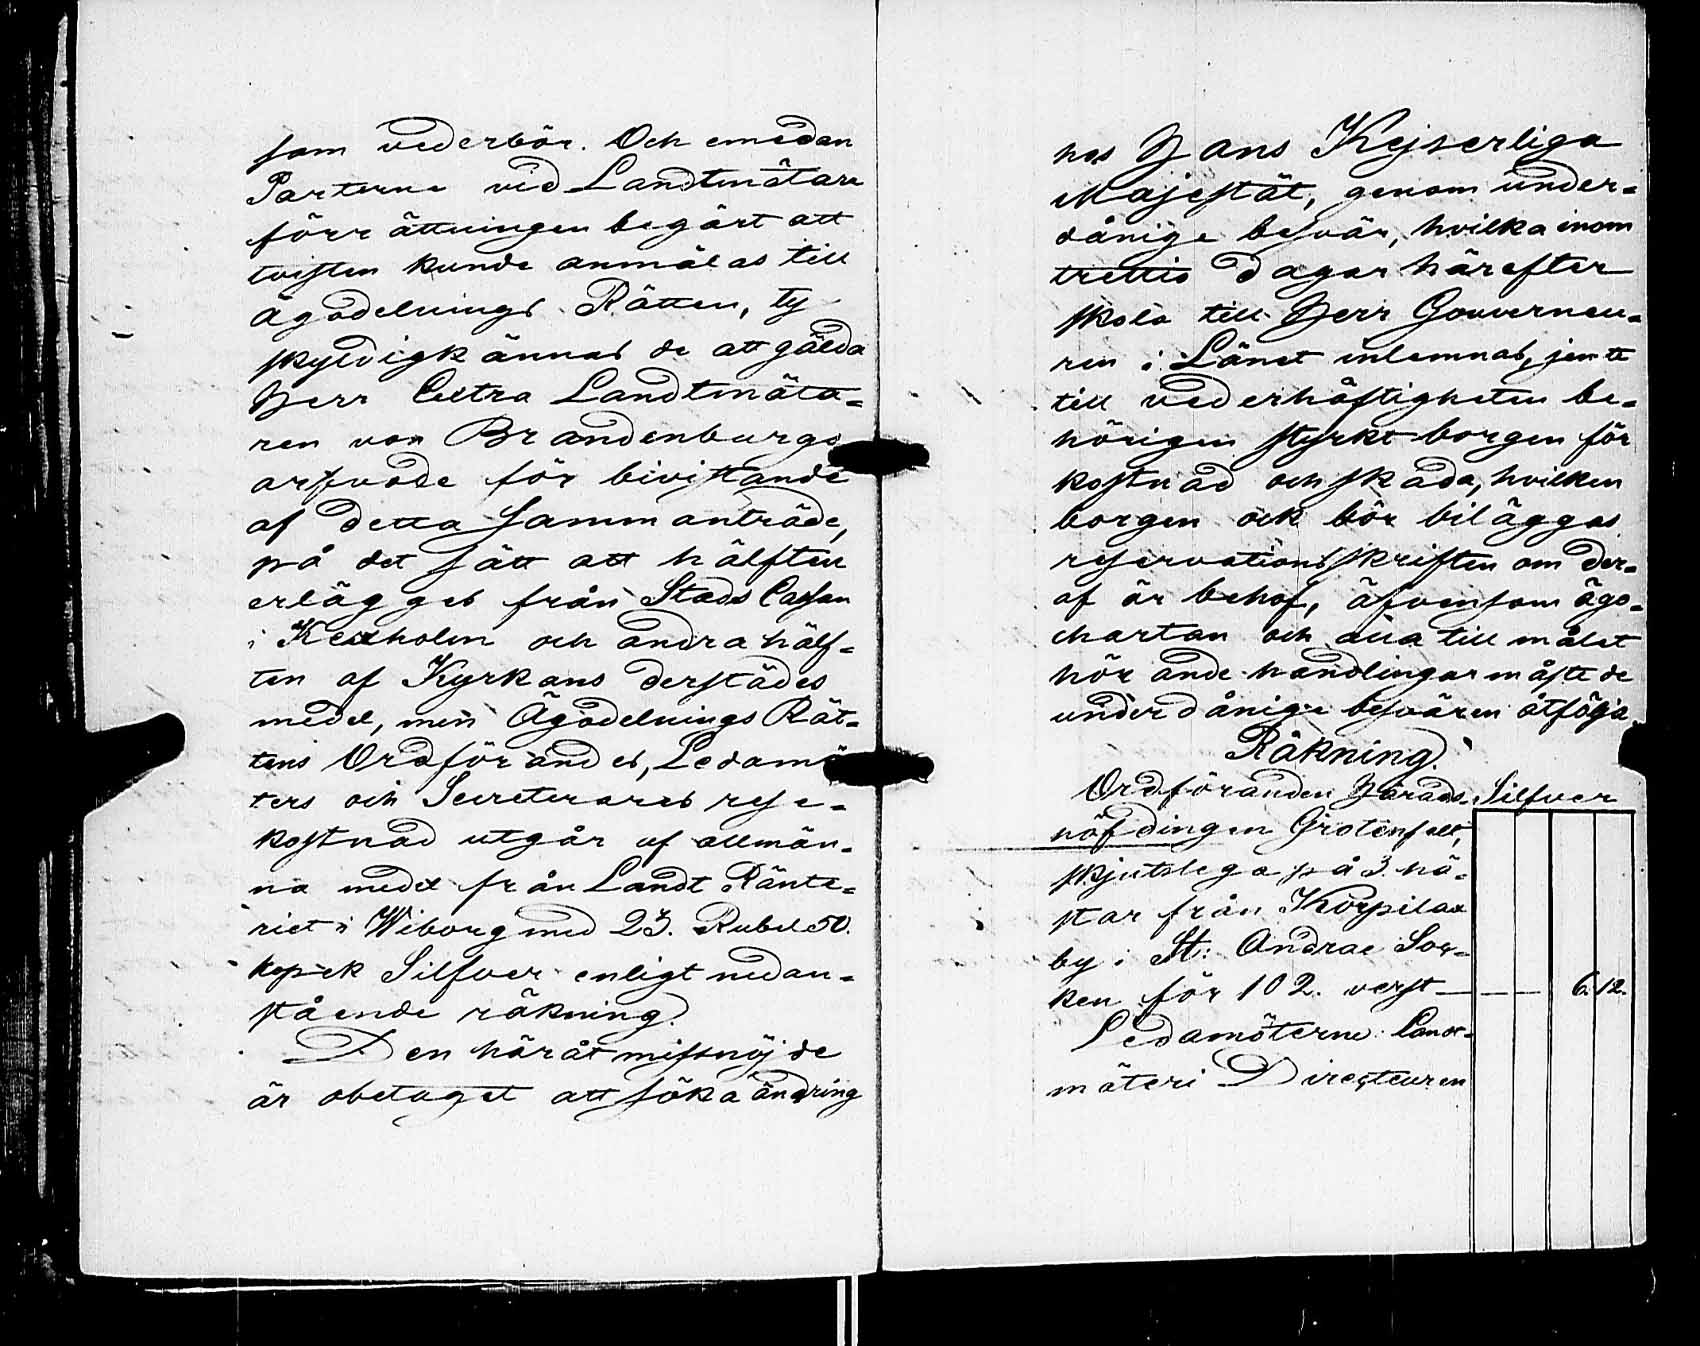 som vederbör. Och emedan
Parterne vid Landtmätare
förrättningen begärt att
tvisten kunde anmälas till
Ägodelnings Rätten, ty
skyldigkännas de att gälda
Herr Extra Landtmäta-
ren von Brandenburgs
arfvode för bivistande
af detta sammanträde,
på det sätt att hälften
erlägges från Stads Cassan
i Kexholm och andra hälf-
ten af Kyrkans derstädes
medel, men Ägodelnings Rät-
tens Ordförandes, Ledamö
ters och Secreterares rese-
kostnad utgår af allmän-
na medel från Landt Ränte-
riet i Wiborg med 23. Rubel 50.
kopek Silfver enligt nedan-
stående räkning.
Den häråt missnöjde
är obetaget att söka ändring
hos Hans Kejserliga
Majestät, genom under-
dånige besvär, hvilka inom
trettio dagar härefter
skola till Herr Gouverneu-
ren i Länet inlemnas, jemte
till vederhäftigheten be-
hörigen styrkt borgen för
kostnad och skada, hvilken
borgen ock bör biläggas
reservationsskriften om der-
af är behof, äfvensom ägo-
chartan och alla till målet
hörande handlingar måste de
underdånige besvären åtfölja.
Räkning.
Ordföranden Härads- Silfver
höfdingen Grotenfelt,
skjutslega på 3. hä-
star från Korpilax
by i St: Andrae Soc-
ken för 102. verst — 6. 12.
Ledamöterne: Landt-
mäteri Directeuren